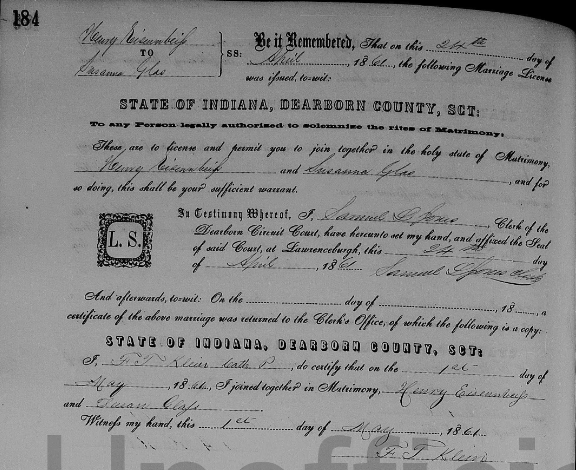 184
Henry Eisenbeiß
TO
Susanna Glas
SS:
Be it Remembered, That on this 24th day of
April, 1861, the following Marriage License
was issued, to-wit:
STATE OF INDIANA, DEARBORN COUNTY, SCT:
To any Person legally authorized to solemnize the rites of Matrimony:
These, are to license and permit you to join together in the holy state of Matrimony,
Henry Eisenbeiß and Susanna Glas, and for
so doing, this shall be your sufficient warrant.
L. S.
In Testimony Whereof, I, Samuel L Jones Clerk of the
Dearborn Circuit Court, have hereunto set my hand, and affixed the Seal
of said Court, at Lawrenceburgh, this 24th day
of April, 1861 Samuel L Jones Clerk
And afterwards, to-wit: On the day of, 18, a
certificate of the above marriage was returned to the Clerk's Office, of which the following is a copy:
STATE OF INDIANA, DEARBORN COUNTY, SCT:
I, F. T. Klein Cath P., do certify that on the 1st day of
May, 1861, I joined together in Matrimony, Henry Eisenbeiß
and Susan Glass
Witness my hand, this 1st day of May, 1861
F. T. Klein